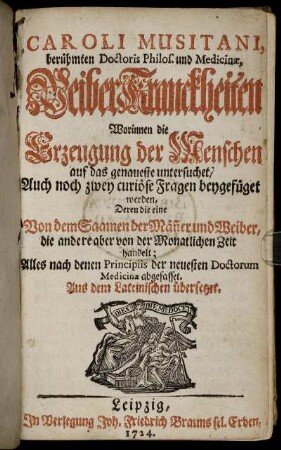 CAROLI MUSITANI,
berühmten Doctoris Philos. und Medicinæ,
Weiber Kranckheiten
Worinnen die
Erzeugung der Menschen
auf das genaueste untersuchet/
Auch noch zwey curiöse Fragen beygefüget
werden,
Deren die eine
Von dem Saamen der Mäñer und Weiber,
die andere aber von der Monatlichen Zeit
handelt;
Alles nach denen Principiis der neuesten Doctorum
Medicinæ abgefasset.
Aus dem Lateinischen übersetzet.
Leipzig,
In Verlegung Joh. Friedrich Brauns sel. Erben,
1724.